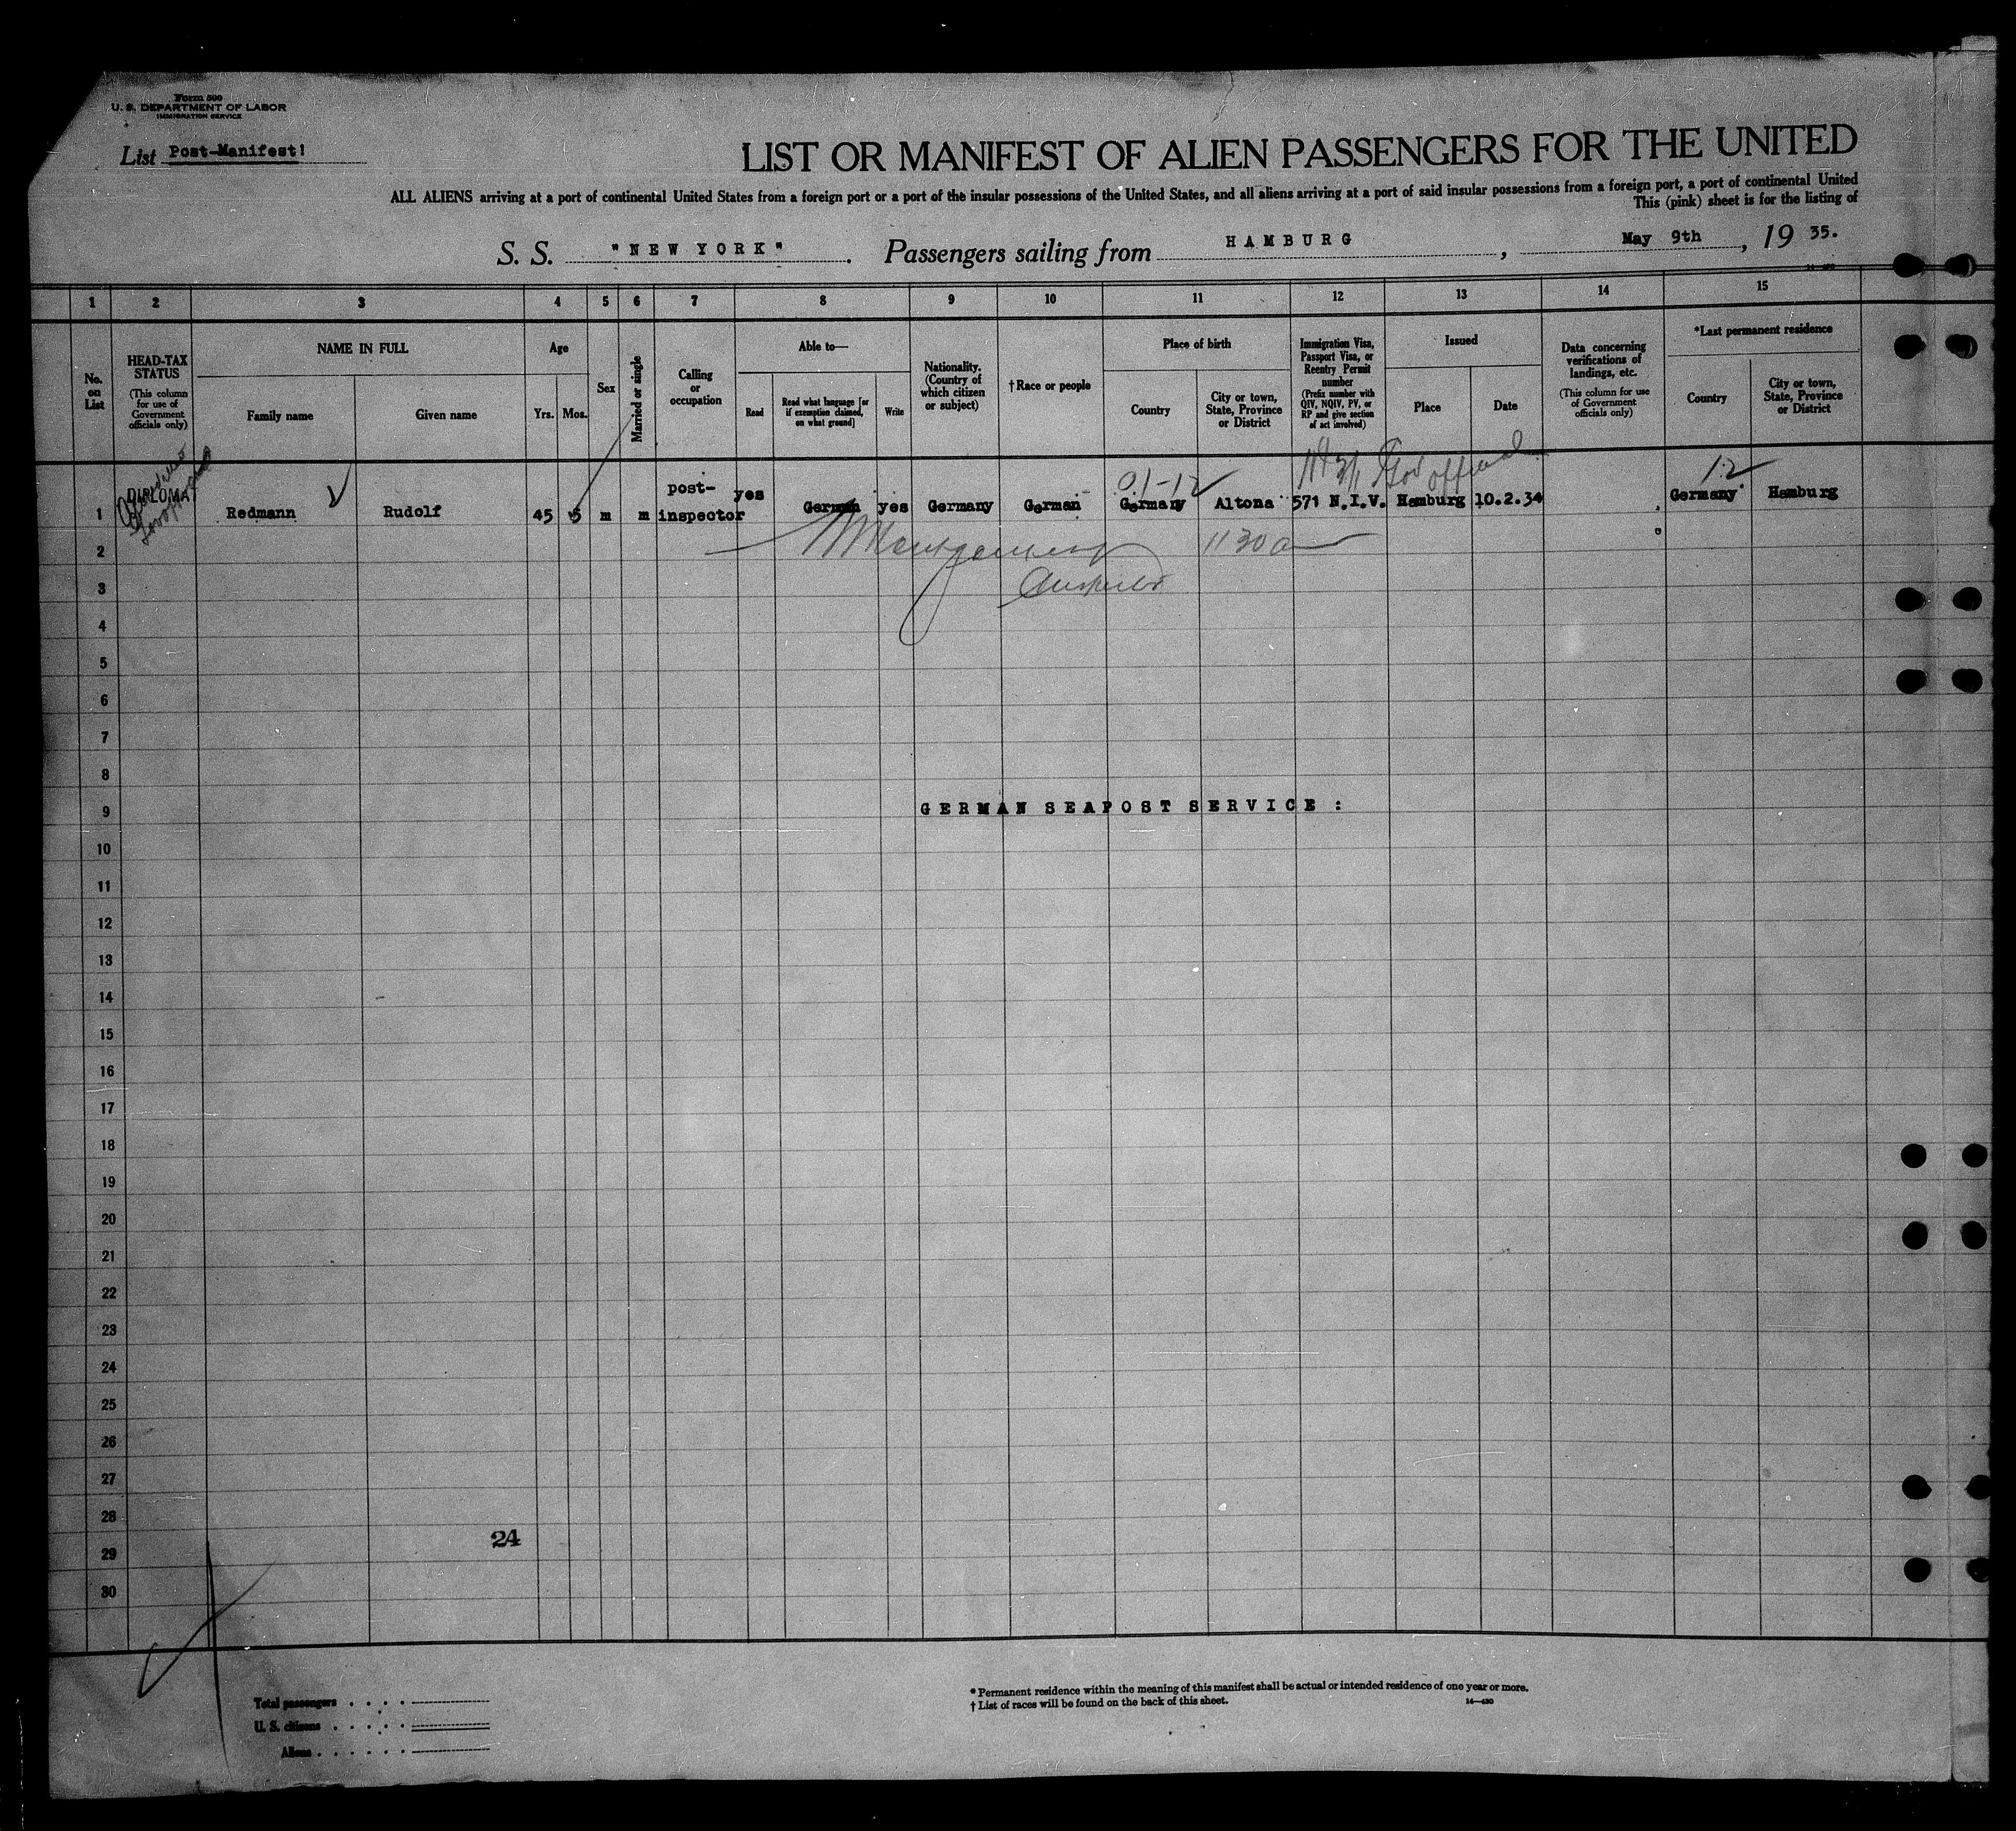 Form 500
U. S. DEPARTMENT OF LABOR
IMMIGRATION SERVICE
List Post-Manifest!
LIST OR MANIFEST OF ALIEN PASSENGERS FOR THE UNITED
ALL ALIENS arriving at a port of continental United States from a foreign port or a port of the insular possessions of the United States, and all aliens arriving at a port of said insular possessions from a foreign port, a port of continental United
This (pink) sheet is for the listing of
S. S. "NEW YORK". Passengers sailing from HAMBURG, May 9th, 19 35.
1 2 3 4 5 6 7 8 9 10 11 12 13 14 15
No. on List
HEAD-TAX STATUS
(This column for use of Government officials only)
NAME IN FULL
Family name
Given name
Age
Yrs.
Mos.
Sex
Married or single
Calling or occupation
Able to—
Read
Read what language [or if exemption claimed, on what ground]
Write
Nationality. (Country of which citizen or subject)
†Race or people
Place of birth
Country
City or town, State, Province or District
Immigration Visa, Passport Visa, or Reentry Permit number
(Prefix number with QIV, NQIV, PV, or RP and give section of act involved)
Issued
Place
Date
Data concerning verifications of landings, etc.
(This column for use of Government officials only)
*Last permanent residence
Country
City or town, State, Province or District
1 DIPLOMAT Redmann Rudolf 45 5 m m post-inspector yes German yes Germany German Germany Altona 571 N.I.V. Hamburg 10.2.34 Germany Hamburg
12
2
Montgomery 11 30 a
3
4
5
6
7
8
9
GERMAN SEAPOST SERVICE :
10
11
12
13
14
15
16
17
18
19
20
21
22
23
24
25
26
27
28
24
29
30
Total passengers
U. S. citizens
Aliens
* Permanent residence within the meaning of this manifest shall be actual or intended residence of one year or more.
† List of races will be found on the back of this sheet.
14—430